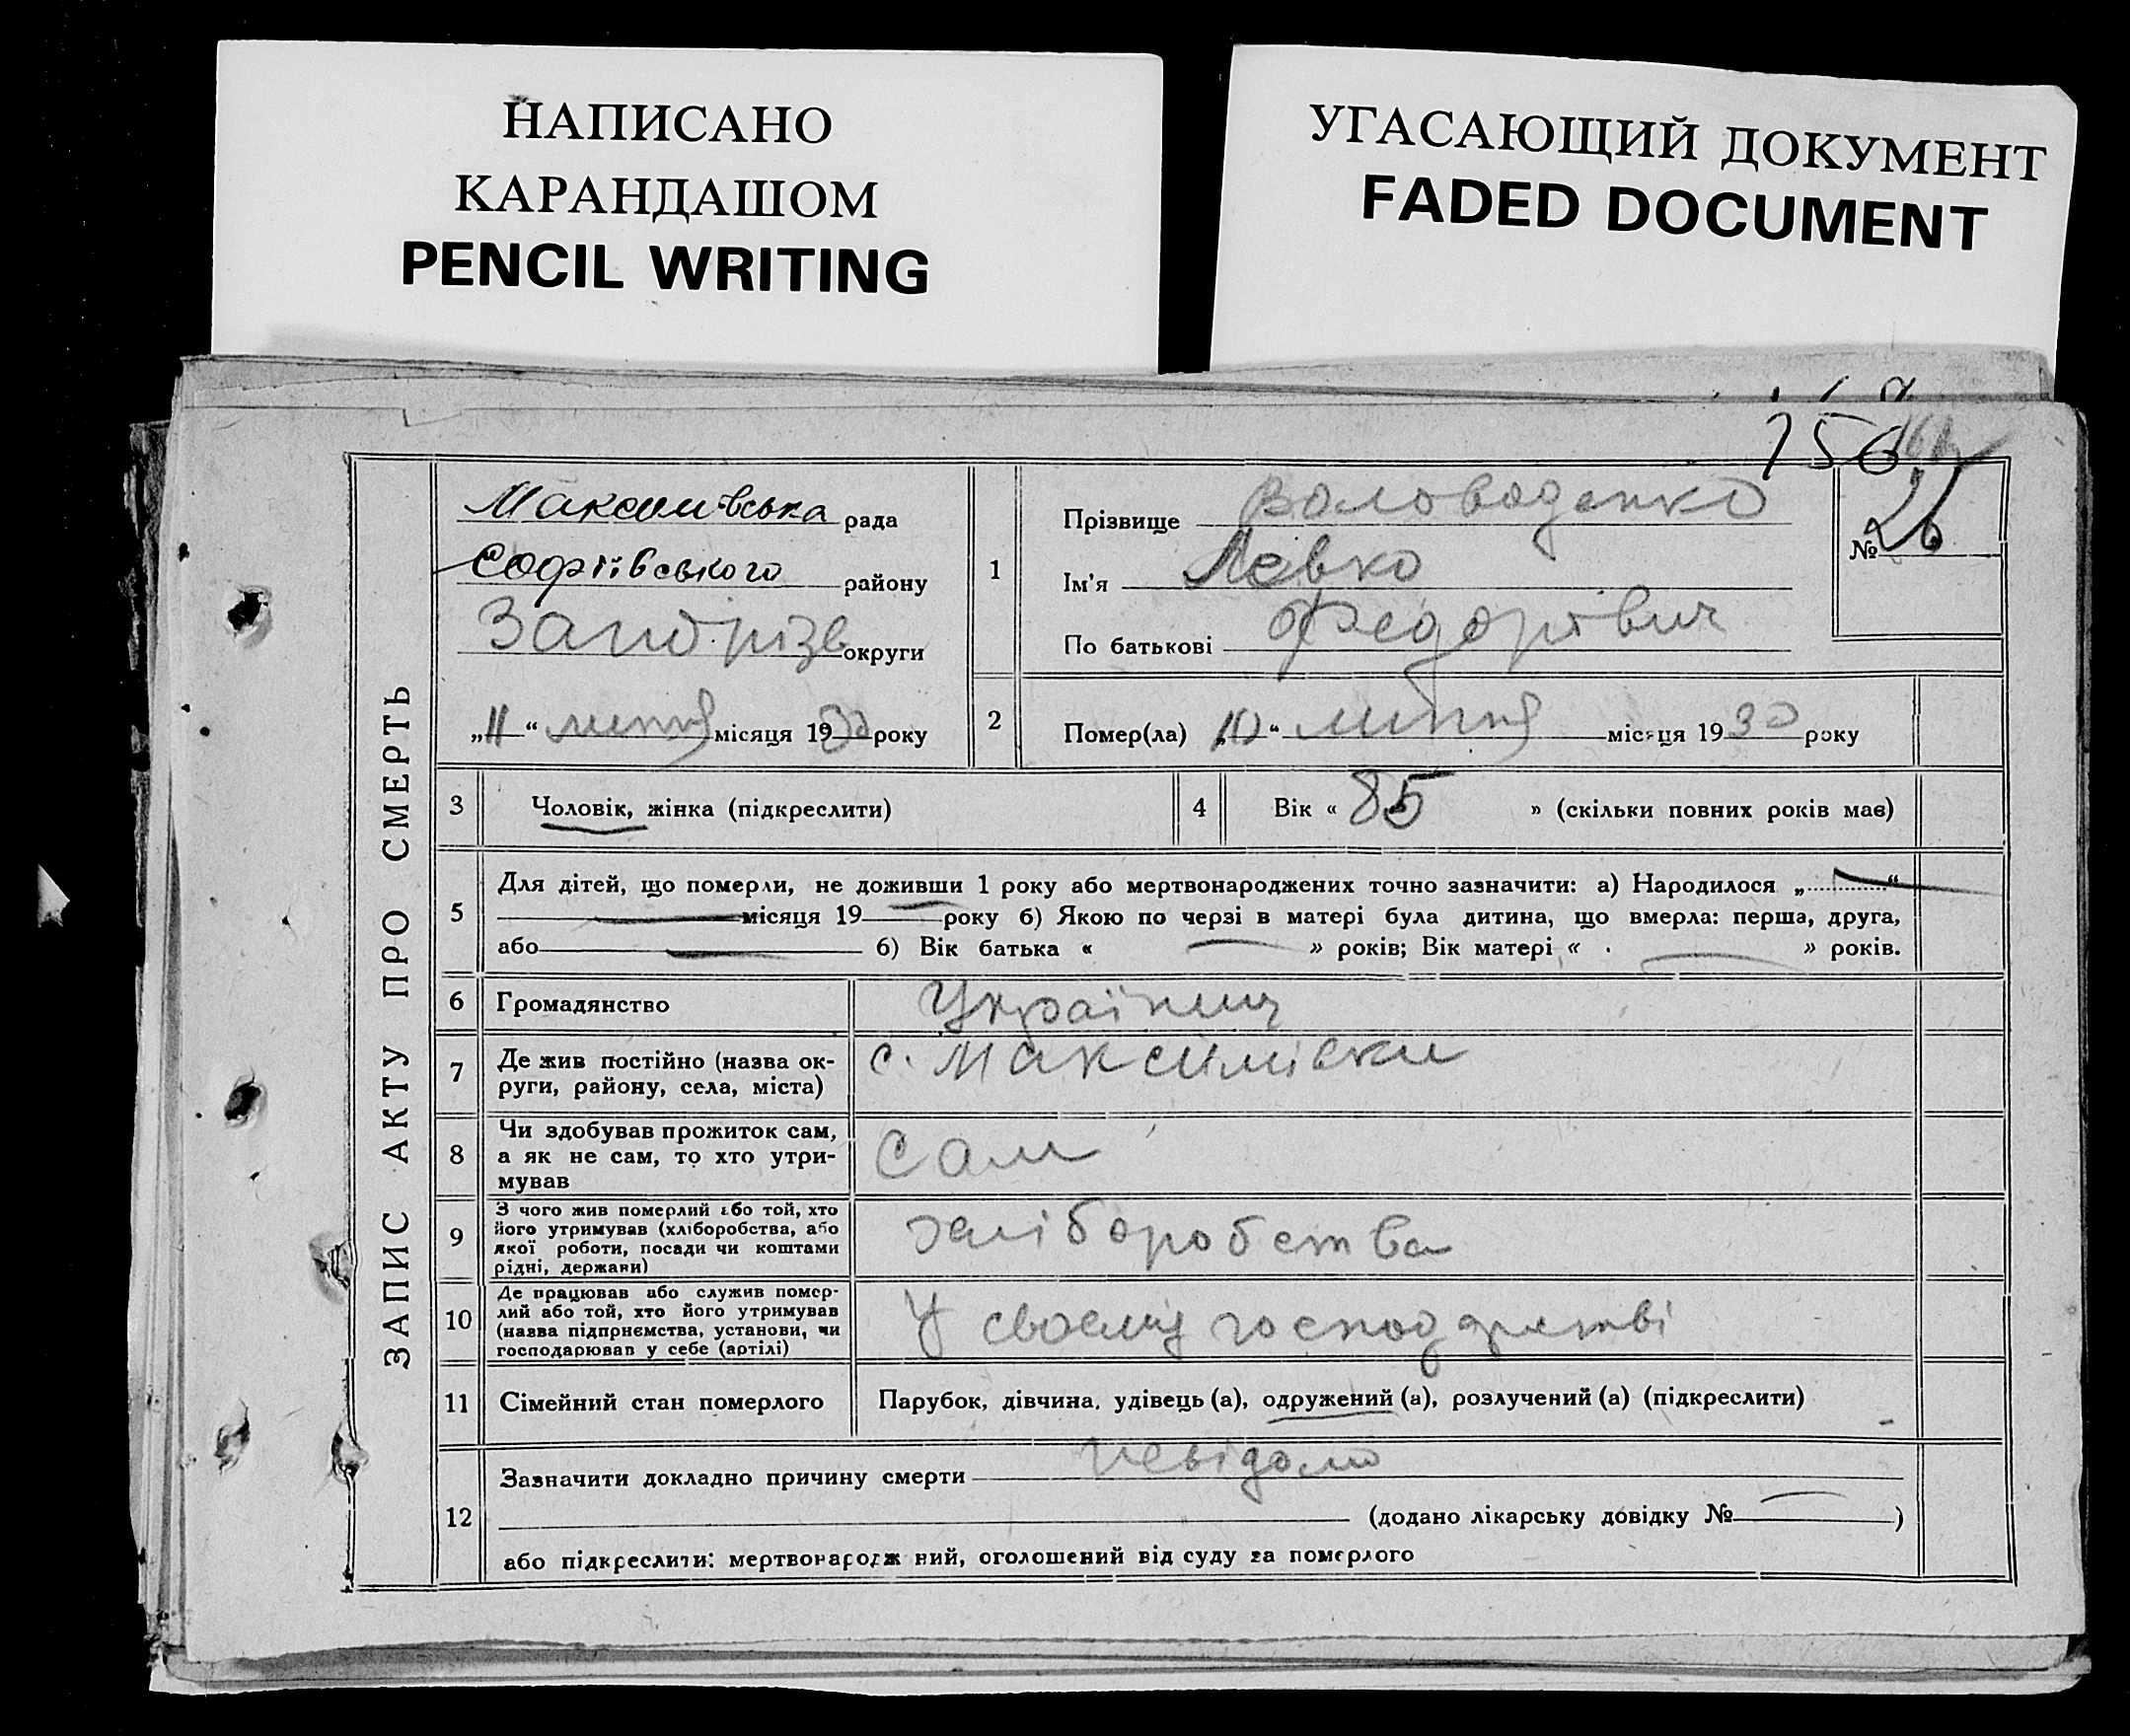 НАПИСАНО
КАРАНДАШОМ
PENCIL WRITING
УГАСАЮЩИЙ ДОКУМЕНТ
FADED DOCUMENT
156
ЗАПИС АКТУ ПРО СМЕРТЬ
Максимівська рада
Софіївського району
Запорізь округи
„11“ липня місяця 1930 року
1
Прізвище Воловоденко
Ім'я Левко
По батькові Федорович
№ 26
2
Помер(ла) „10“ липня місяця 1930 року
3 Чоловік, жінка (підкреслити)
4 Вік « 85 » (скільки повних років має)
5
Для дітей, що померли, не доживши 1 року або мертвонароджених точно зазначити: а) Народилося „ “
місяця 19 року б) Якою по черзі в матері була дитина, що вмерла: перша, друга,
або б) Вік батька « » років; Вік матері « » років.
6 Громадянство Українец
7 Де жив постійно (назва ок-
руги, району, села, міста)
с. Максимівки
8 Чи здобував прожиток сам,
а як не сам, то хто утри-
мував
Сам
9 З чого жив померлий або той, хто
його утримував (хліборобства, або
якої роботи, посади чи коштами
рідні, держави)
хліборобства
10 Де працював або служив помер-
лий або той, хто його утримував
(назва підприємства, установи, чи
господарював у себе (артілі)
У своєму господарстві
11 Сімейний стан померлого Парубок, дівчина, удівець (а), одружений (а), розлучений (а) (підкреслити)
12
Зазначити докладно причину смерти невідомо
(додано лікарську довідку № )
або підкреслити: мертвонародж ний, оголошений від суду за померлого